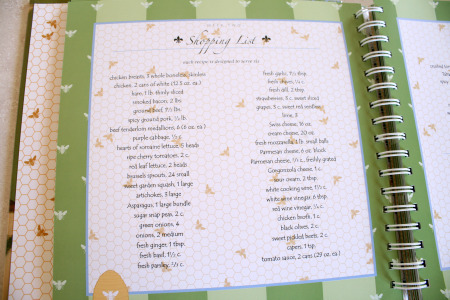 Shopping List
each recipe is designed to serve six
chicken breasts, 3 whole boneless, skinless
chicken, 2 cans of white (12.5 oz. ea.)
ham, 1 lb. thinly sliced
smoked bacon, 2 lbs.
ground beef, 1½ lbs.
spicy ground pork, ½ lb.
beef tenderloin medallions, 6 (6 oz. ea.)
purple cabbage, ½ c.
hearts of romaine lettuce, 3 heads
ripe cherry tomatoes, 2 c.
red leaf lettuce, 2 heads
brussels sprouts, 24 small
sweet garden squash, 1 large
artichokes, 3 large
Asparagus, 1 large bundle
sugar snap peas, 2 c.
green onions, 4
onions, 2 medium
fresh ginger, 1 tbsp.
fresh basil, 1½ c.
fresh parsley, ½ c.
fresh garlic, 1½ tbsp.
fresh chives, ¼ c.
fresh dill, 2 tbsp.
strawberries, 3 c. sweet sliced
grapes, 3 c. sweet red seedless
limes, 3
Swiss cheese, 16 oz.
cream cheese, 20 oz.
fresh mozzarella, 1 lb. small balls
Parmesan cheese, 6 oz. block
Parmesan cheese, ½ c., freshly grated
Gorgonzola cheese, 1 c.
sour cream, 2 tbsp.
white cooking wine, 1½ c.
white wine vinegar, 6 tbsp.
red wine vinegar, ½ c.
chicken broth, 1 c.
black olives, 2 c.
sweet pickled beets, 2 c.
capers, 1 tsp.
tomato sauce, 2 cans (29 oz. ea.)